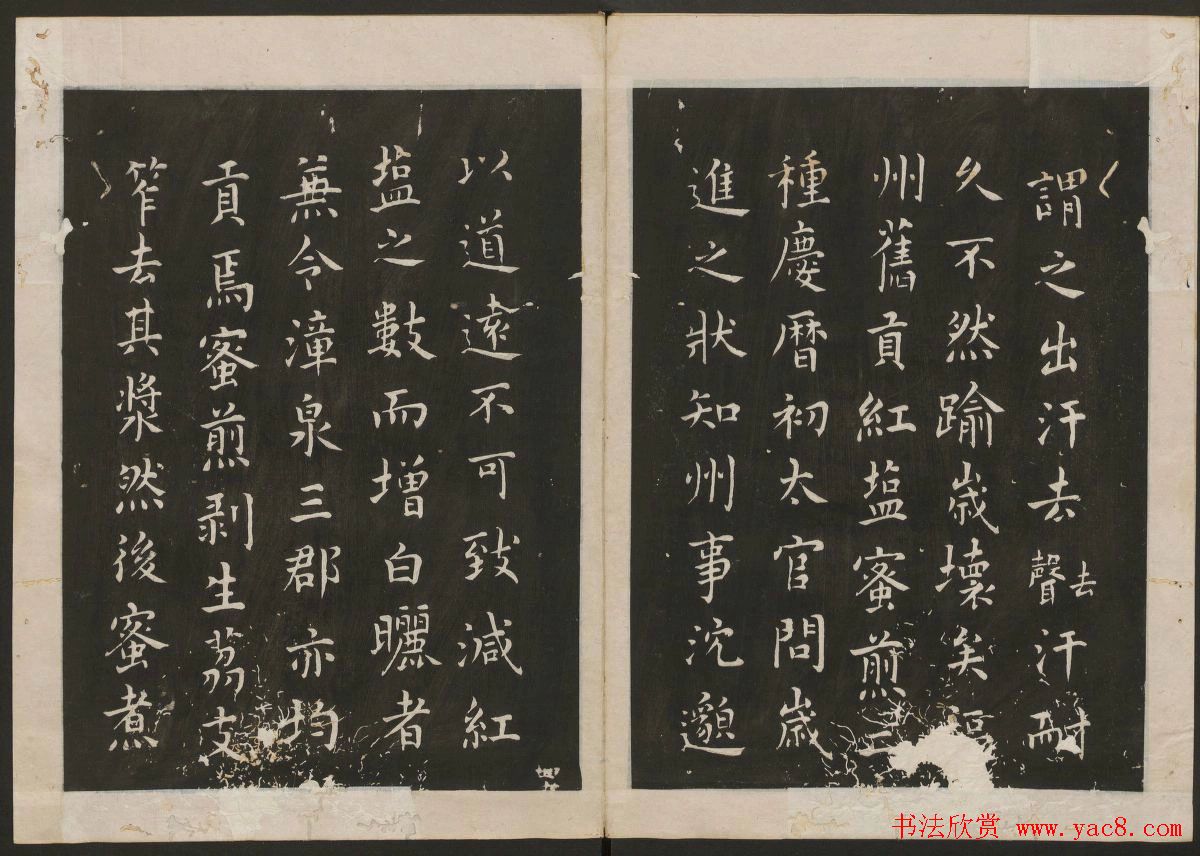 謂之出汗去聲去汗耐
久不然踰歲壞矣福
州舊貢紅塩蜜煎二
種慶曆初太官問歲
進之狀知州事沈邈
以道遠不可致減紅
塩之數而增白曬者
蕪令漳泉三郡亦均
貢焉蜜煎剥生荔支
笮去其漿然後蜜煮
书法欣赏 www.yac8.com